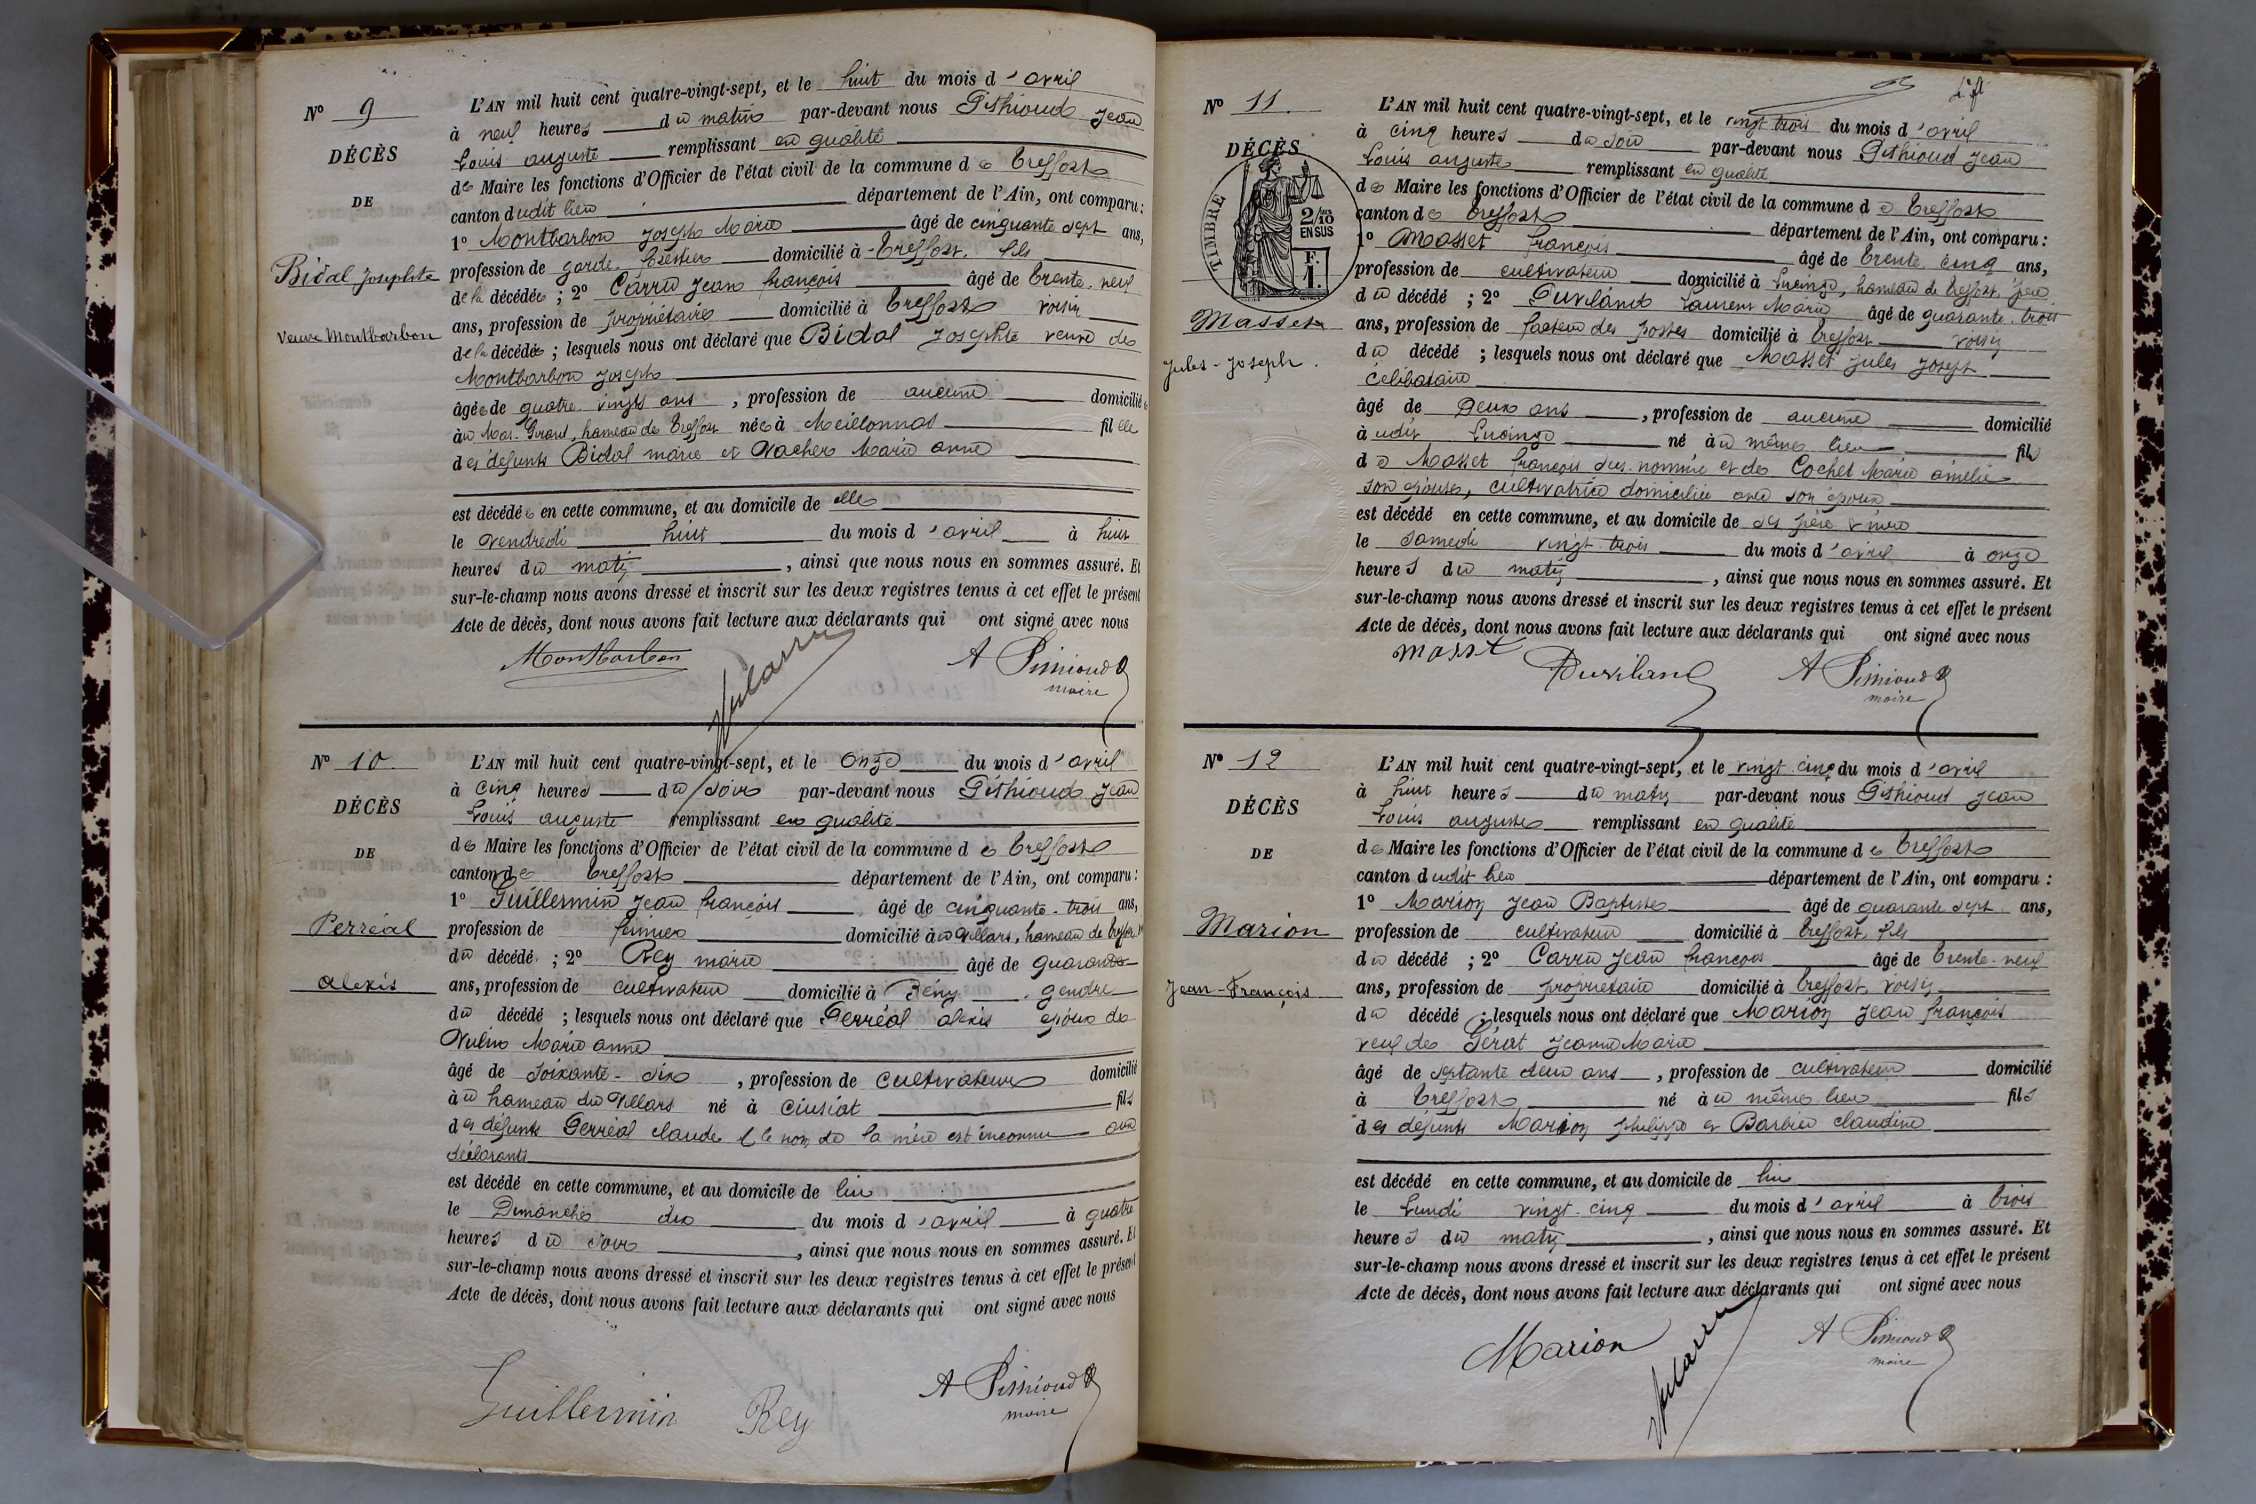 N° 9
DÉCÈS
DE
Bidal Josephte
Veuve Montbarbon
L'AN mil huit cent quatre-vingt-sept, et le huit du mois d'avril
à neuf heures du matin par-devant nous Pithioud Jean
Louis auguste remplissant en qualité
de Maire les fonctions d'Officier de l'état civil de la commune de Treffort
canton dudit lieu département de l'Ain, ont comparu :
1° Montbarbon Joseph Marie âgé de cinquante sept ans,
profession de garde forestier domicilié à Treffort, fils
de la décédée ; 2° Carru Jean françois âgé de trente neuf
ans, profession de propriétaire domicilié à Treffort voisin
de la décédée ; lesquels nous ont déclaré que Bidal Josephte veuve de
Montbarbon Joseph
âgée de quatre vingts ans , profession de aucune domiciliée
au Mas Girard, hameau de Treffort née à Meillonnas fille
des défunts Bidal marie et Vacher Marie anne
est décédée en cette commune, et au domicile de elle
le vendredi huit du mois d'avril à huit
heures du matin , ainsi que nous nous en sommes assuré. Et
sur-le-champ nous avons dressé et inscrit sur les deux registres tenus à cet effet le présent
Acte de décès, dont nous avons fait lecture aux déclarants qui ont signé avec nous
Montbarbon
A Pithioud
maire
N° 10
DÉCÈS
DE
Perréal
alexis
L'AN mil huit cent quatre-vingt-sept, et le onze du mois d'avril
à cinq heures du soir par-devant nous Pithioud Jean
Louis auguste remplissant en qualité
de Maire les fonctions d'Officier de l'état civil de la commune de Treffort
canton de Treffort département de l'Ain, ont comparu :
1° Guillermin Jean françois âgé de cinquante trois ans,
profession de fermier domicilié au Villars, hameau de Treffort
du décédé ; 2° Rey marie âgé de quarante
ans, profession de cultivateur domicilié à Bény gendre
du décédé ; lesquels nous ont déclaré que Perréal alexis époux de
Vulin Marie anne
âgé de soixante-six , profession de cultivateur domicilié
au hameau du Villars né à Ciusiat fils
des défunts Perréal claude & le nom de la mère est inconnu aux
déclarants
est décédé en cette commune, et au domicile de lui
le Dimanche dix du mois d'avril à quatre
heures du soir , ainsi que nous nous en sommes assuré. Et
sur-le-champ nous avons dressé et inscrit sur les deux registres tenus à cet effet le présent
Acte de décès, dont nous avons fait lecture aux déclarants qui ont signé avec nous
Guillermin Rey
A Pithioud
maire
N° 11
DÉCÈS
TIMBRE
2/10
EN SUS
F.
1.
Masset
Jules-Joseph.
L'AN mil huit cent quatre-vingt-sept, et le vingt trois du mois d'avril
à cinq heures du soir par-devant nous Pithioud Jean
Louis auguste remplissant en qualité
de Maire les fonctions d'Officier de l'état civil de la commune de Treffort
canton de Treffort département de l'Ain, ont comparu :
1° Masset françois âgé de trente cinq ans,
profession de cultivateur domicilié à Lucinge, hameau de Treffort, père
du décédé ; 2° Duviland Laurent Marie âgé de quarante-trois
ans, profession de facteur des postes domicilié à Treffort voisin
du décédé ; lesquels nous ont déclaré que Masset Jules Joseph
célibataire
âgé de deux ans , profession de aucune domicilié
à udit Lucinge né au même lieu fils
de Masset françois sus-nommé et de Cochet Marie amélie
son épouse, cultivatrice domiciliée avec son époux
est décédé en cette commune, et au domicile de ses père & mère
le samedi vingt trois du mois d'avril à onze
heures du matin , ainsi que nous nous en sommes assuré. Et
sur-le-champ nous avons dressé et inscrit sur les deux registres tenus à cet effet le présent
Acte de décès, dont nous avons fait lecture aux déclarants qui ont signé avec nous
masset
Duviland
A Pithioud
maire
N° 12
DÉCÈS
DE
Marion
Jean-François
L'AN mil huit cent quatre-vingt-sept, et le vingt cinq du mois d'avril
à huit heures du matin par-devant nous Pithioud Jean
Louis auguste remplissant en qualité
de Maire les fonctions d'Officier de l'état civil de la commune de Treffort
canton dudit lieu département de l'Ain, ont comparu :
1° Marion Jean Baptiste âgé de quarante sept ans,
profession de cultivateur domicilié à Treffort, fils
du décédé ; 2° Carru Jean françois âgé de trente-neuf
ans, profession de propriétaire domicilié à Treffort, voisin
du décédé ; lesquels nous ont déclaré que Marion Jean françois
veuf de Pérat Jeanne Marie
âgé de septante deux ans , profession de cultivateur domicilié
à Treffort né au même lieu fils
des défunts Marion philippe et Barbier claudine
est décédé en cette commune, et au domicile de lui
le Lundi vingt-cinq du mois d'avril à trois
heures du matin , ainsi que nous nous en sommes assuré. Et
sur-le-champ nous avons dressé et inscrit sur les deux registres tenus à cet effet le présent
Acte de décès, dont nous avons fait lecture aux déclarants qui ont signé avec nous
Marion
A Pithioud
maire